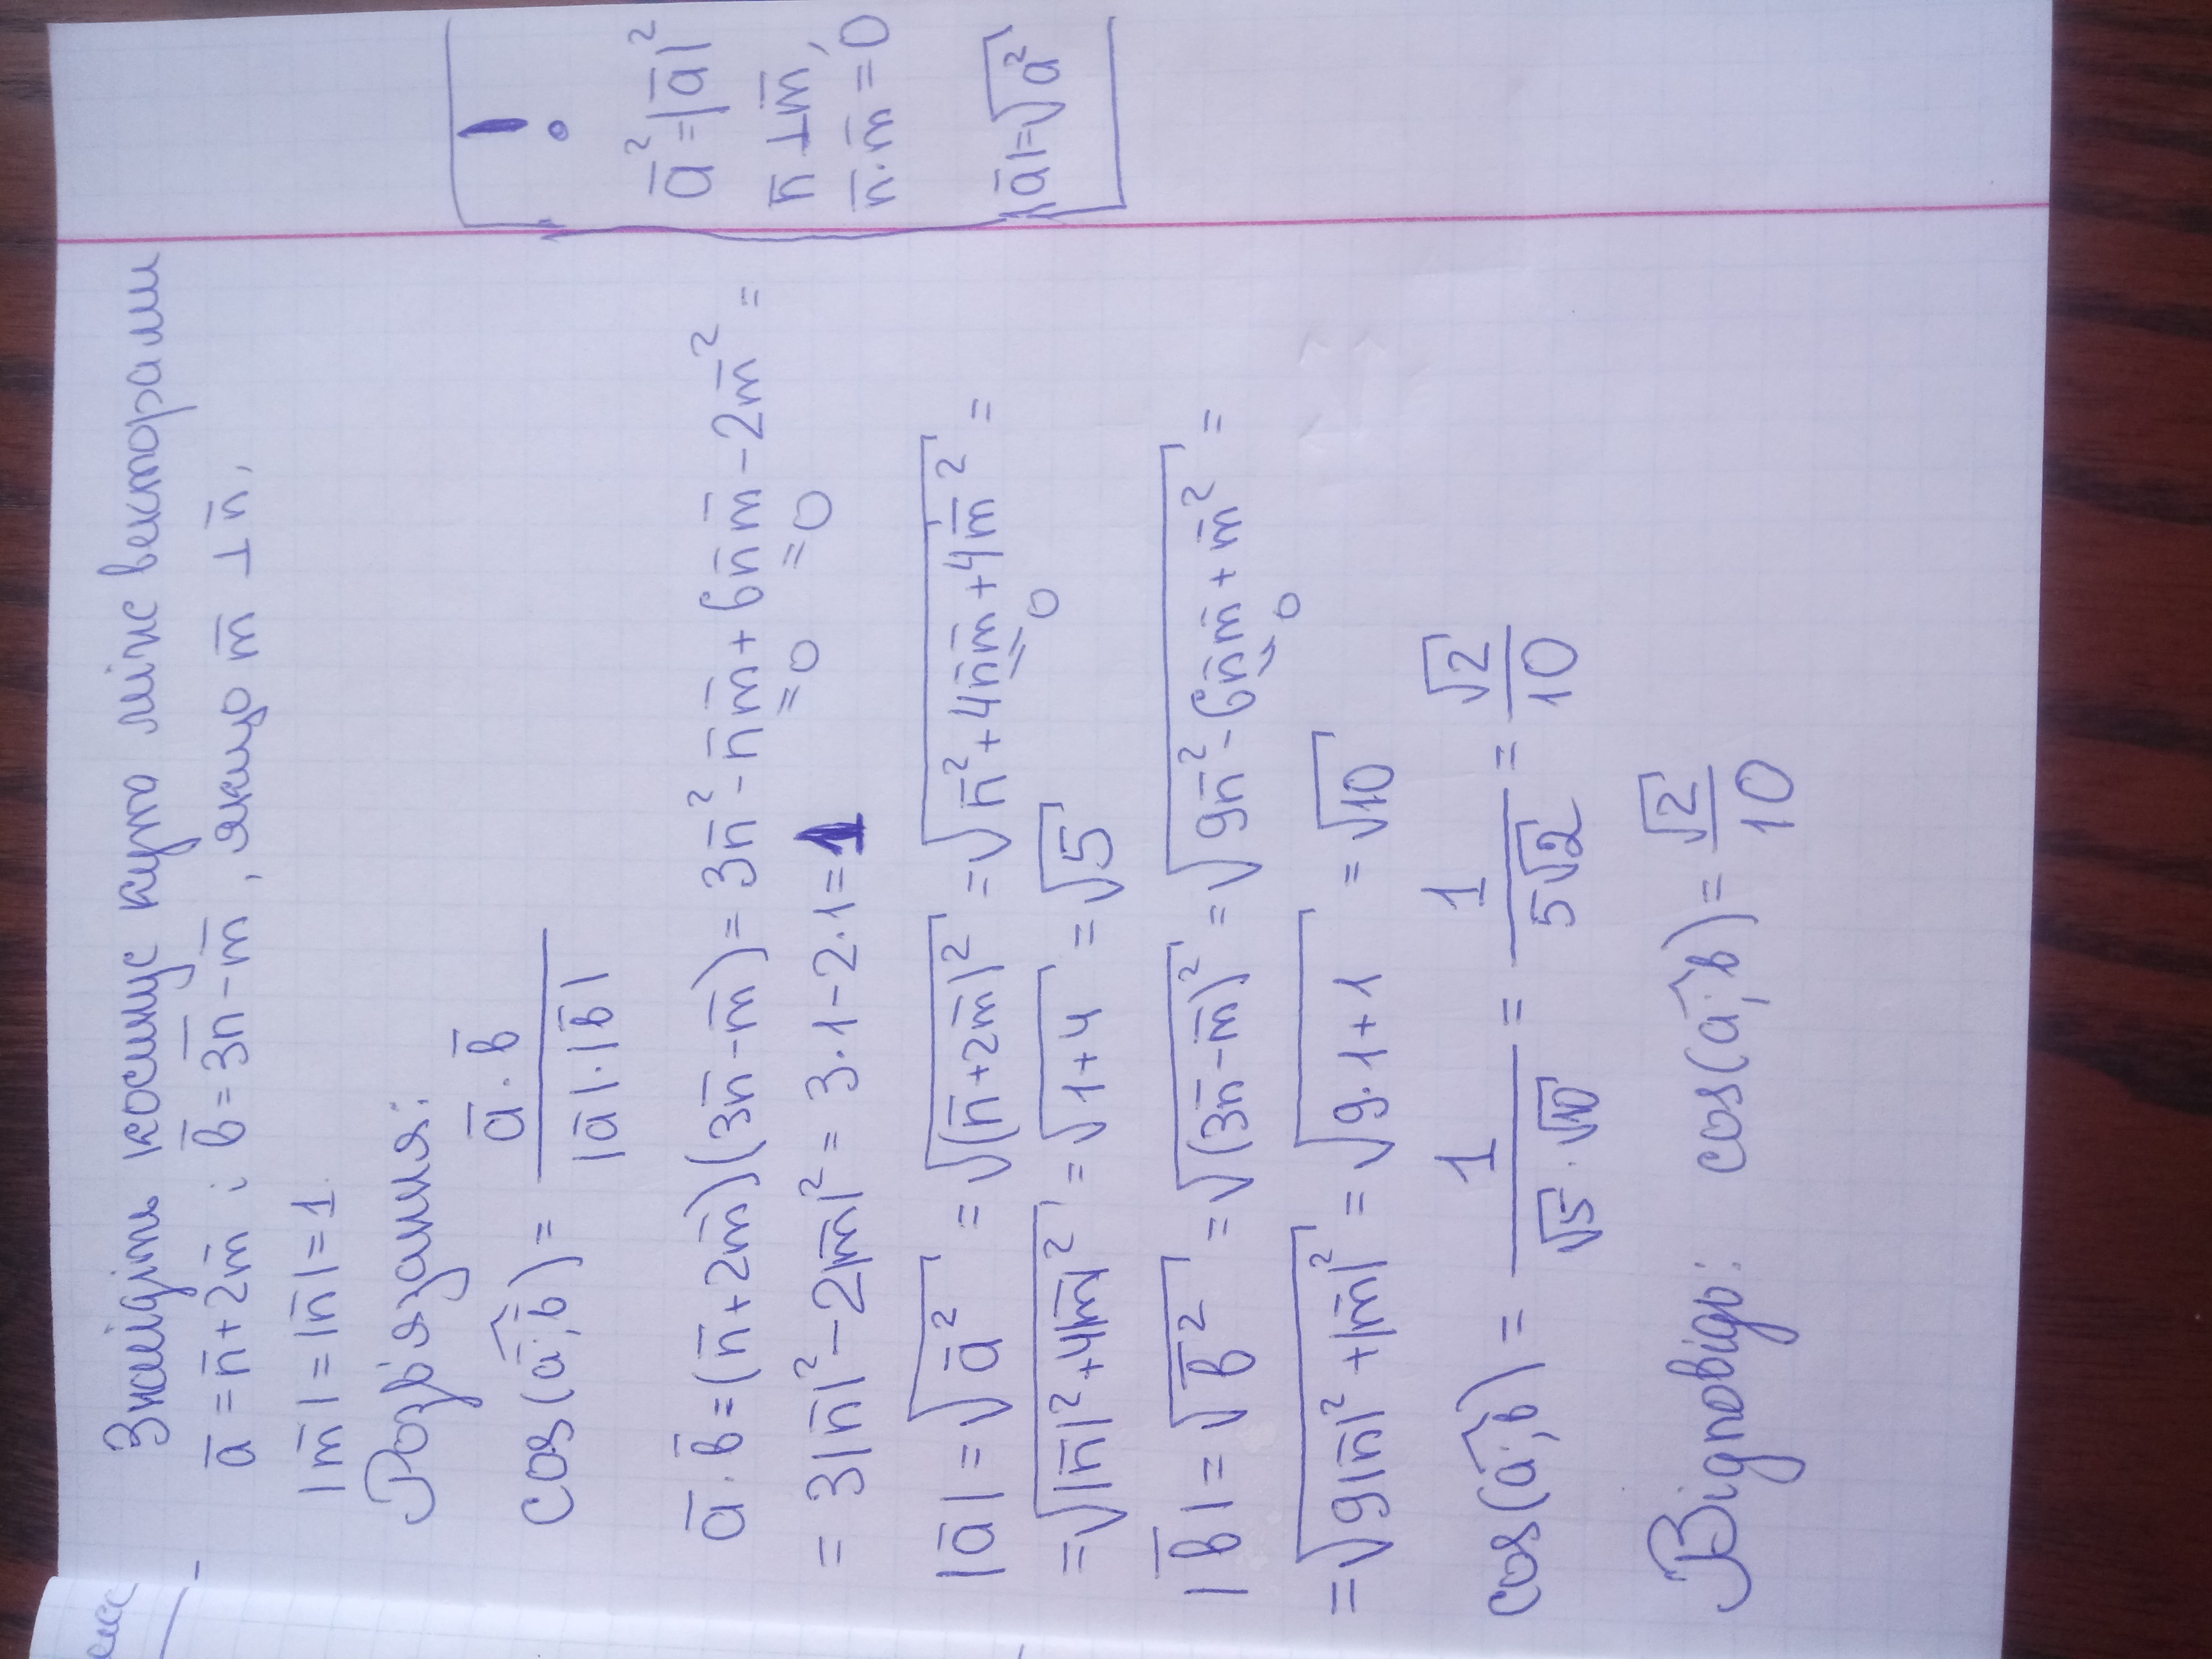 Знайдіть косинус кута між векторами
a̅ = n̅ + 2m̅ ; b̅ = 3n̅ - m̅ , якщо m̅ ⊥ n̅,
|m̅| = |n̅| = 1.
Розв'язання:
cos(a̅;b̅) = (a̅ · b̅)/(|a̅| · |b̅|)
!
a̅² = |a̅|²
n̅ ⊥ m̅,
n̅ · m̅ = 0
|a̅| = √a̅²
a̅ · b̅ = (n̅ + 2m̅)(3n̅ - m̅) = 3n̅² - n̅m̅ + 6n̅m̅ - 2m̅² =
=0 =0
= 3|n̅|² - 2|m̅|² = 3·1 - 2·1 = 1
|a̅| = √a̅² = √(n̅ + 2m̅)² = √n̅² + 4n̅m̅ + 4m̅² =
= 0
= √|n̅|² + 4|m̅|² = √1+4 = √5
|b̅| = √b̅² = √(3n̅ - m̅)² = √9n̅² - 6n̅m̅ + m̅² =
= 0
= √9|n̅|² + |m̅|² = √9·1+1 = √10
cos(a̅;b̅) = 1/(√5 · √10) = 1/(5√2) = √2/10
Відповідь: cos(a̅;b̅) = √2/10